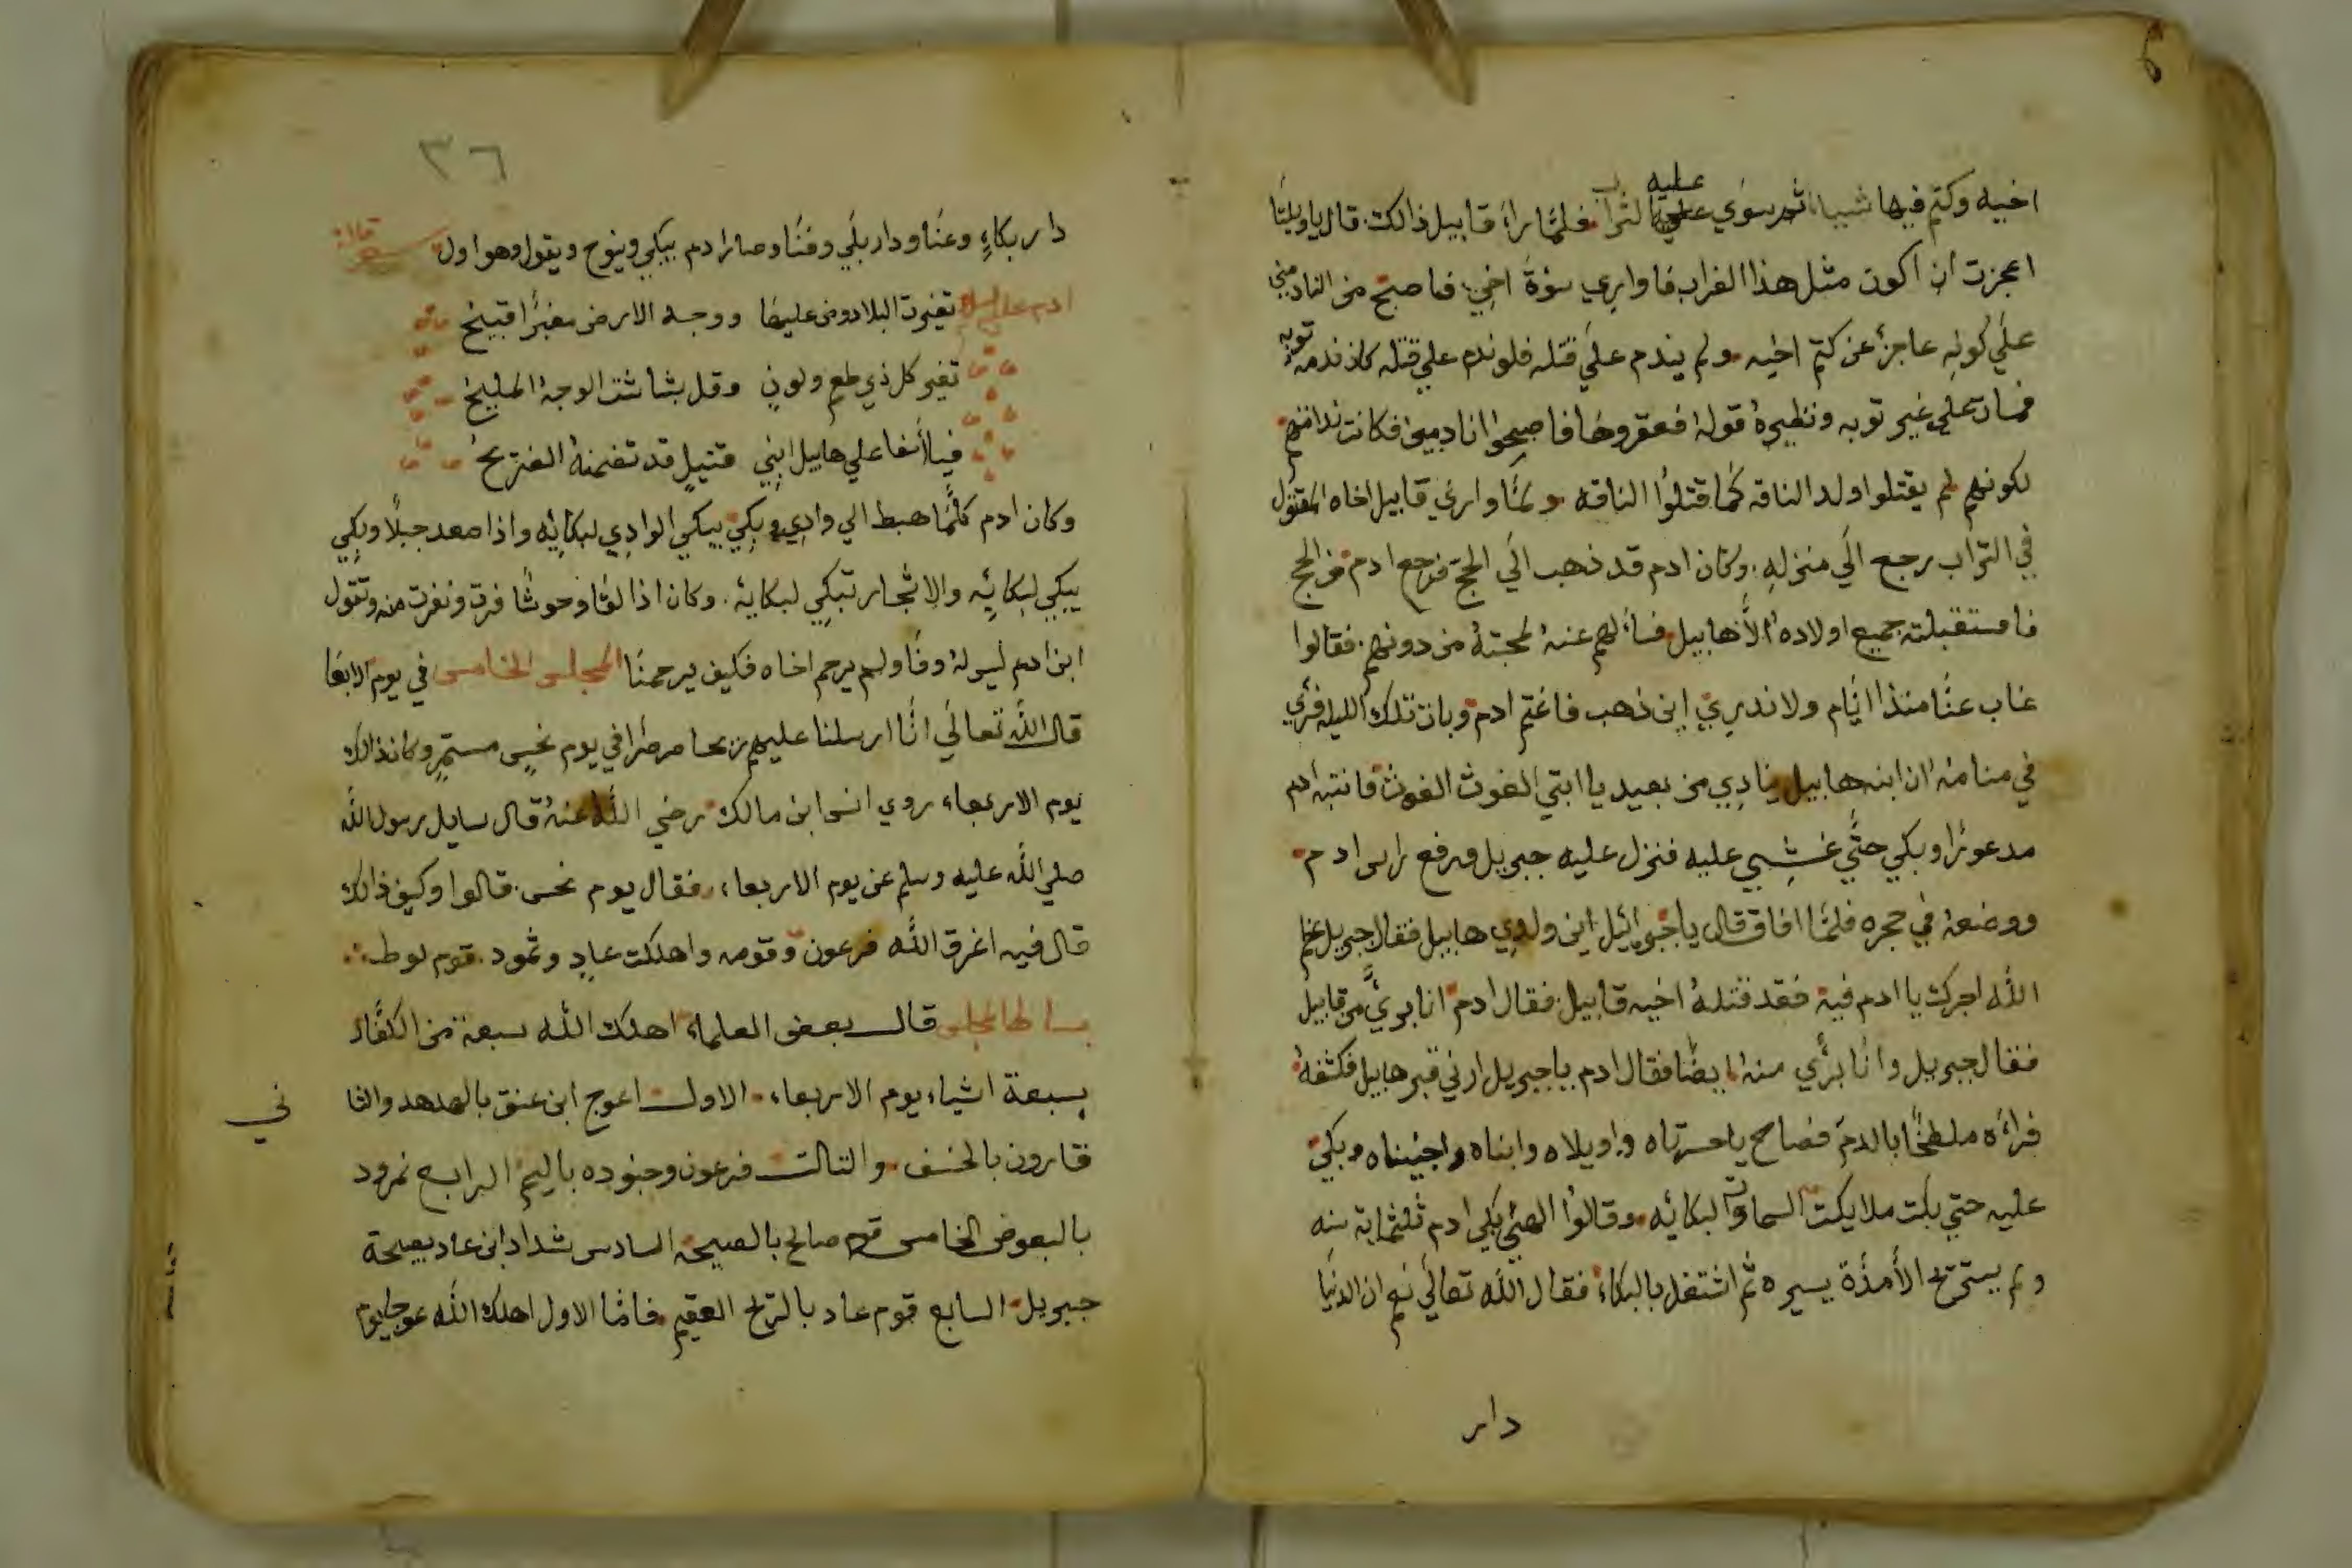 اخيه وكتم فيها شيبا ثم سوي عليه الثراب فلمّا راء قابيل ذالك قال ياويلتا
اعجزت ان اكون مثل هذا الغراب فاواري سوءة اخي فاصبح من النادمين
علي كونه عاجزٌ عن كتم اخيه ولم يندم علي قتله فلو ندم علي قتله كان ندمه توبه
فمات علي غير توبه ونظيره قوله فعقروها فاصبحوا نادمين فكانت ندامتهم
لكونهم لم يقتلوا ولد الناقه كما قتلوا الناقه ولمّا واري قابيل اخاه المقتول
في التراب رجع الي منزله وكان ادم قد ذهب الي الحج فرجع ادم من الحج
فاستقبلته جميع اولاده الّا هابيل فسالهم عنه لمحبته من دونهم فقالوا
غاب عنّا منذ ايّام ولا ندري اين ذهب فاغتم ادم وبات تلك الليله فرئي
في منامه ان ابنه هابيل ينادي من بعيد يا ابتي الغوث الغوث فانتبه ادم
مدعورا وبكي حتّي غشي عليه فنزل عليه جبريل ورفع راس ادم
ووضعه في حجره فلمّا افاق قال يا جبرائيل اين ولدي هابيل فقال جبريل عظم
الله اجرك يا ادم فيه فقد قتله اخيه قابيل فقال ادم انا بريّ من قابيل
فقال جبريل وانا بريّ منه ايضا فقال ادم ياجبريل ارني قبر هابيل فكشفه
فراه ملطخا بالدم فصاح ياحسرتاه واويلاه وابناه وبكي
عليه حتي بكت ملايكت السماوات لبكائه وقالوا الهي بكي ادم ثلثماية سنه
ولم يسترح الا مدّة يسيره ثم اشتغل بالبكاء فقال الله تعالي نعم ان الدنيا
دار
٣٦
دار بكاءٍ وعنا ودار بلي وفنا وصار ادم يبكي وينوح ويقول وهو اول شعر قاله
ادم عليه السلام تغيرت البلاد ومن عليها ووجه الارض مغبرّا قبيح
تغير كل ذي طعم ولونٍ وقل بشاشت الوجه المليح
فيا اسفا علي هابيل ابني قتيلٍ قد تضمنه الضريح
وكان ادم كلمّا هبط الي وادي وبكي يبكي الوادي لبكائه واذا صعد جبلاً وبكي
يبكي لبكائه والاشجار تبكي لبكايه وكان اذا لقا وحوشا فرت ونفرت منه وتقول
ابن ادم ليس له وفا ولم يرحم اخاه فكيف يرحمنا المجلس الخامس في يوم الاربعا
قال الله تعالي انّا ارسلنا عليهم ريحا صرصرا في يوم نحسٍ مستمرٍ وكان ذالك
يوم الاربعاء روي انس ابن مالك رضي الله عنه قال سايل رسول الله
صلي الله عليه وسلم عن يوم الاربعاء فقال يوم نحس قالوا وكيف ذالك
قال فيه اغرق الله فرعون وقومه واهلكت عادٍ وثمود قوم لوط
بساط المجلس قال بعض العلماء اهلك الله سبعة من الكفّار
بسبعة اشياء يوم الاربعاء الاول اعوج ابن عنق بالهدهد والثا
ني
قارون بالخسف والتالت فرعون وجنوده باليم الرابع نمرود
بالبعوض الخامس قوم صالح بالصيحه السادس شداد ابن عاد بصيحة
جبريل السابع قوم عاد بالريح العقيم فامّا الاول اهلك الله عوجا يوم